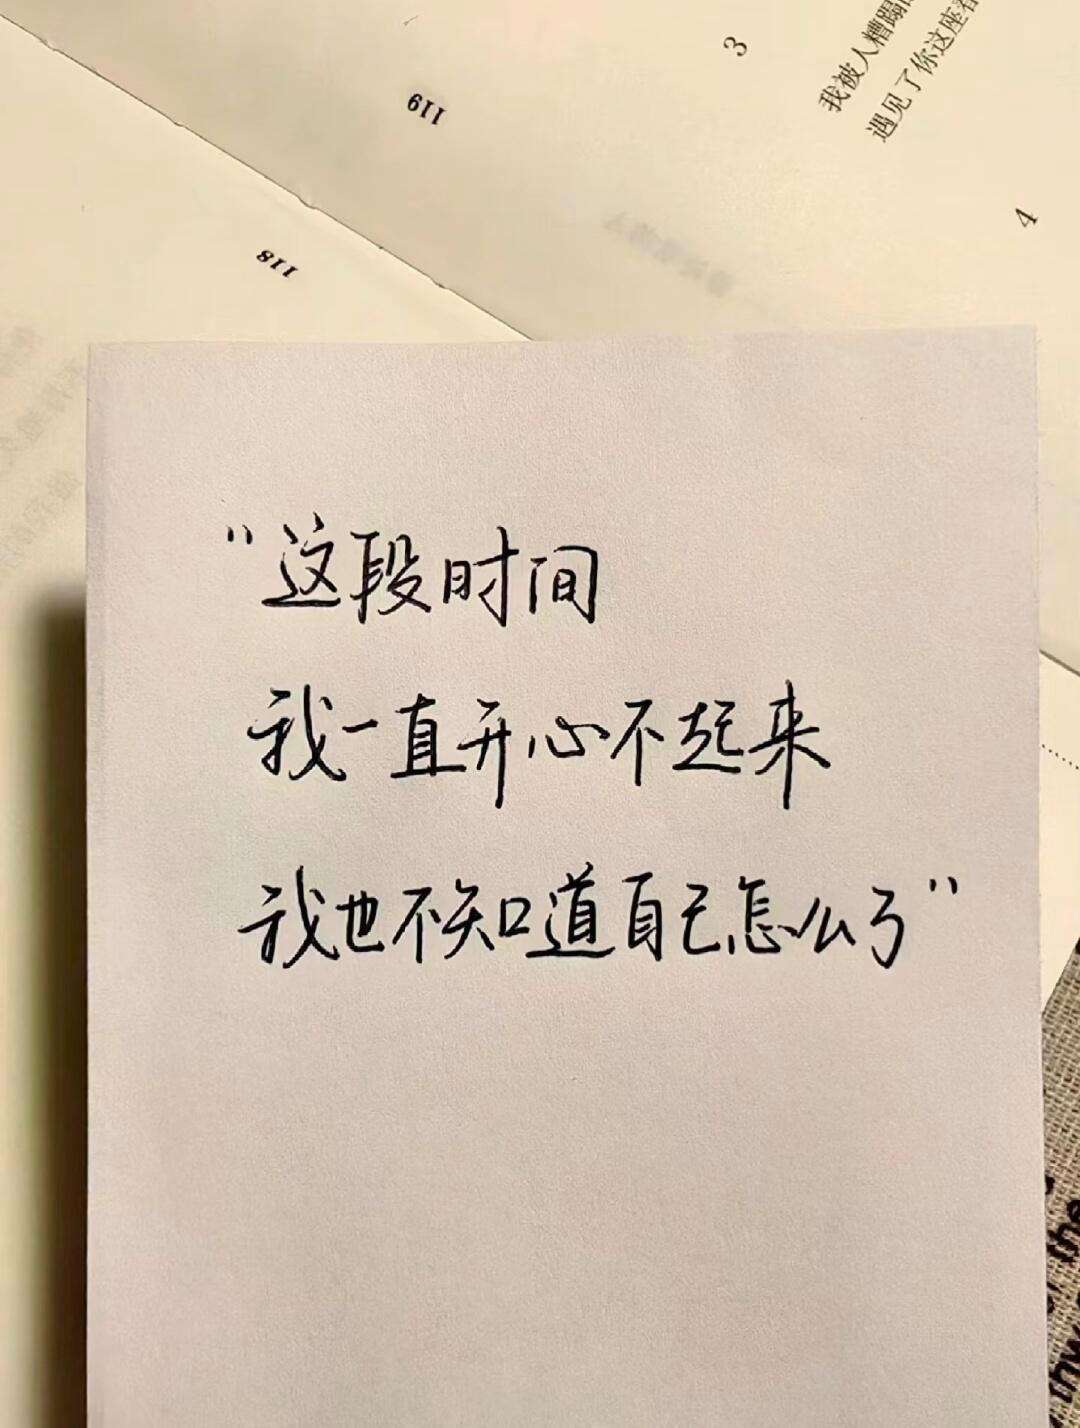 3
我被人糟蹋
遇见了你这座
119
4
118
"这段时间
我一直开心不起来
我也不知道自己怎么了"
the